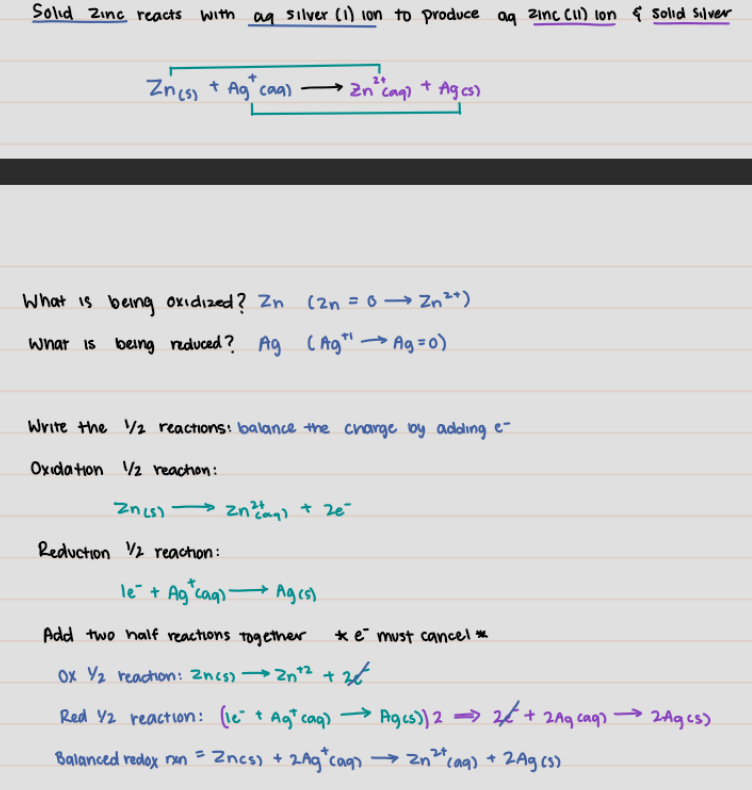 Solid zinc reacts with aq silver (I) ion to produce aq zinc (II) ion & solid silver
Zn(s) + Ag⁺(aq) ⟶ Zn²⁺(aq) + Ag(s)
What is being oxidized? Zn (Zn = 0 → Zn²⁺)
What is being reduced? Ag (Ag⁺¹ → Ag = 0)
Write the 1/2 reactions: balance the charge by adding e⁻
Oxidation 1/2 reaction:
Zn(s) ⟶ Zn²⁺(aq) + 2e⁻
Reduction 1/2 reaction:
1e⁻ + Ag⁺(aq) ⟶ Ag(s)
Add two half reactions together * e⁻ must cancel *
Ox 1/2 reaction: Zn(s) ⟶ Zn⁺² + 2e⁻
Red 1/2 reaction: (1e⁻ + Ag⁺(aq) ⟶ Ag(s)) 2 ⟹ 2e⁻ + 2Ag(aq) ⟶ 2Ag(s)
Balanced redox rxn = Zn(s) + 2Ag⁺(aq) ⟶ Zn²⁺(aq) + 2Ag(s)